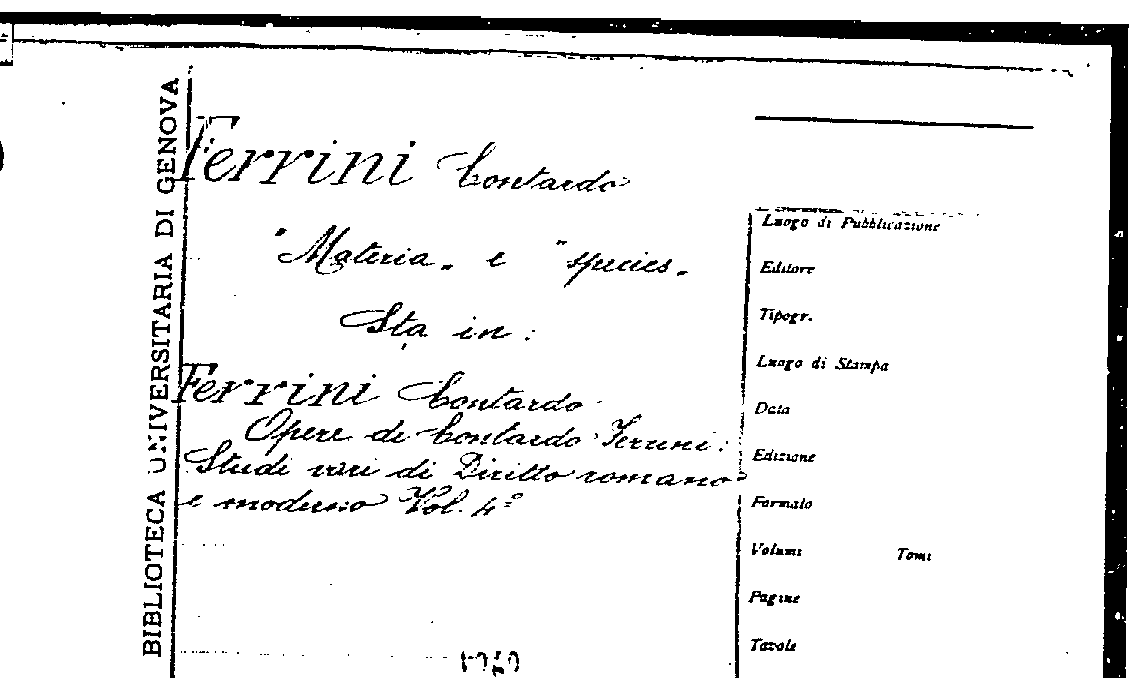 BIBLIOTECA UNIVERSITARIA DI GENOVA
Ferrini Contardo
"Materia„ e "species„
Sta in:
Ferrini Contardo
Opere di Contardo Ferrini:
Studi vari di Diritto romano
e moderno Vol. 4º
Luogo di Pubblicazione
Editore
Tipogr.
Luogo di Stampa
Data
Edizione
Formato
Volumi Tomi
Pagine
Tavole